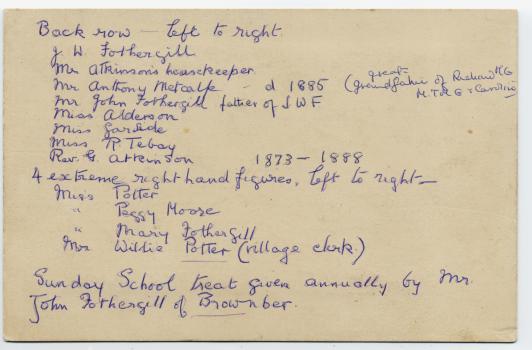 Back row – left to right
J. W. Fothergill
Mr Atkinson's housekeeper
Mr Anthony Metcalfe – d 1885 (great grandfather of Richard
Mr John Fothergill father of JWF
Miss Alderson
Miss Garside
Miss R Tebay
Rev. G. Atkinson 1873 – 1888
4 extreme right hand figures, left to right –
Miss Potter
" Peggy Moore
" Mary Fothergill
Mr Willie Potter (village clerk)
Sunday School treat given annually by Mr.
John Fothergill of Brownber.